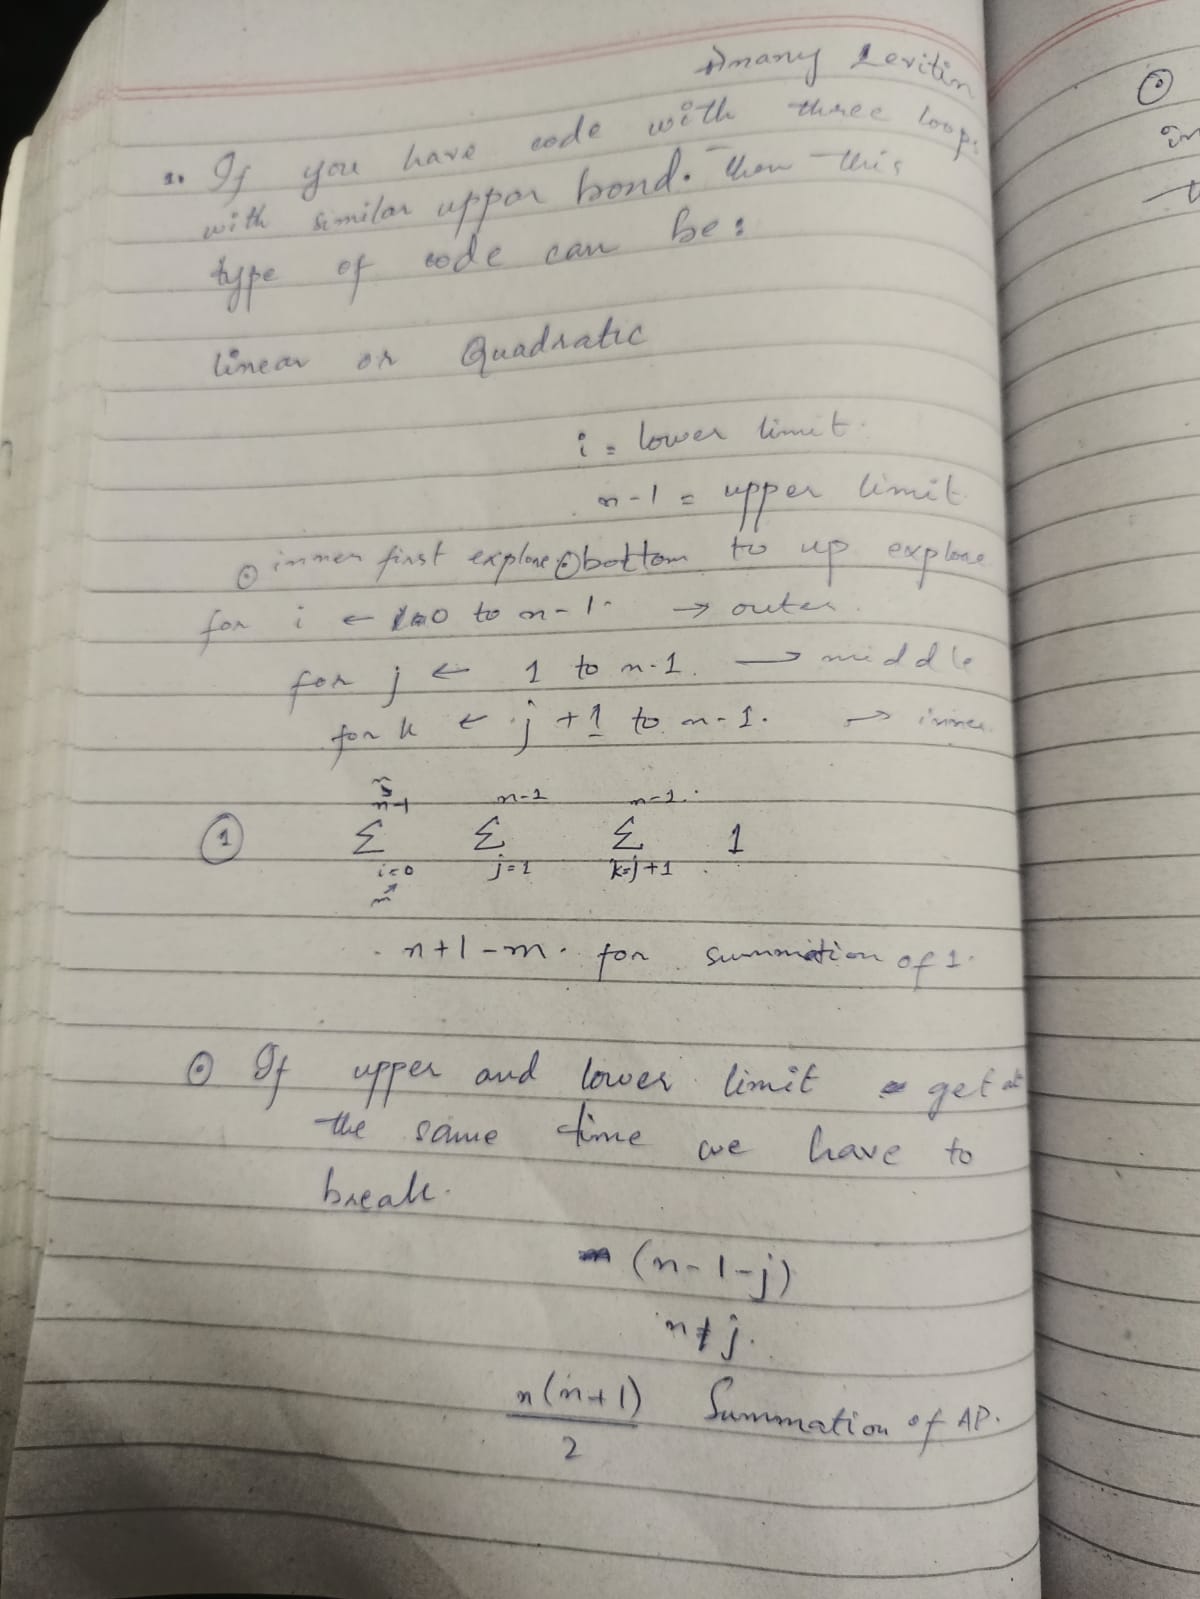 Anany Levitin
1. If you have code with three loops
with similar uppor bond. then this
type of code can be:
linear or Quadratic
i = lower limit.
n-1 = upper limit.
⊙ inner first explore ⊙ bottom to up explore
for i ← 0 to n-1. → outer.
for j ← 1 to n-1. → middle
for k ← j+1 to n-1. → inner
n
n-1 n-1 n-1.
① Σ Σ Σ 1
i=0 j=1 k=j+1
m
n+1-m. for summation of 1.
⊙ If upper and lower limit get at
the same time we have to
break.
(n-1-j)
n≠j.
n(n+1)/2 Summation of AP.
⊙
in